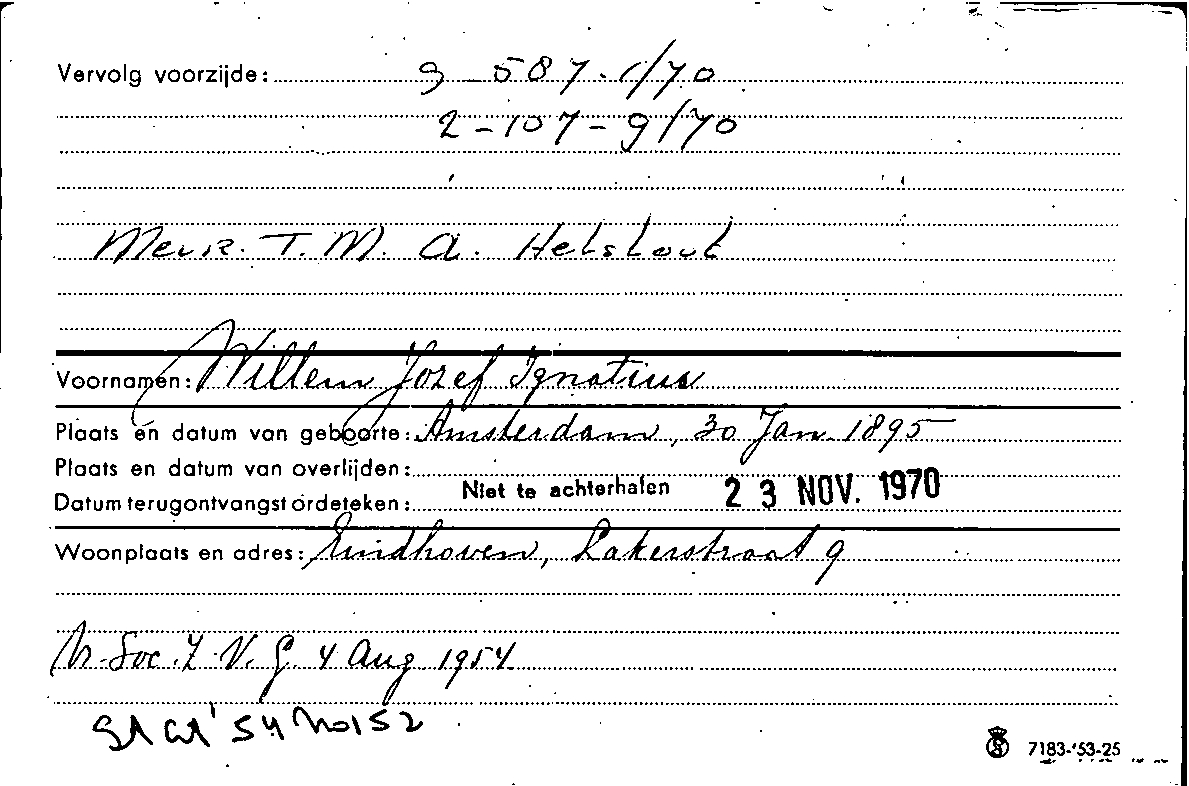 Vervolg voorzijde: 9 - 587 - 1/70
2 - 107 - 9/70
Mevr. T. M. A. Helslout
Voornamen: Willem Jozef Ignatius
Plaats en datum van geboorte: Amsterdam, 30 Jan. 1895
Plaats en datum van overlijden:
Niet te achterhalen 23 NOV. 1970
Datum terugontvangst ordeteken:
Woonplaats en adres: Eindhoven, Lakerstraat 9
M. Soc. Z. V. G. 4 Aug 1954
St Ct '54 No 152
7183-'53-25